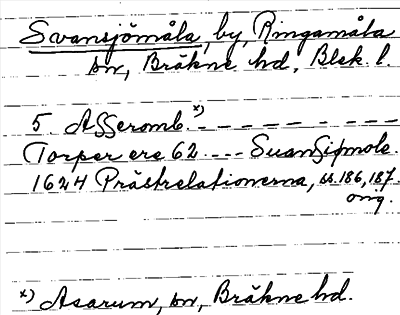 Svansjömåla, by, Ringamåla
sn, Bräkne hd, Blek. l.
5. Asseromb.ˣ⁾ – – – – – – – –
Torper ere 62 – – – Suansiømole.
1624 Prästrelationerna, ss. 186, 187.
orig.
x) Asarum, sn, Bräkne hd.